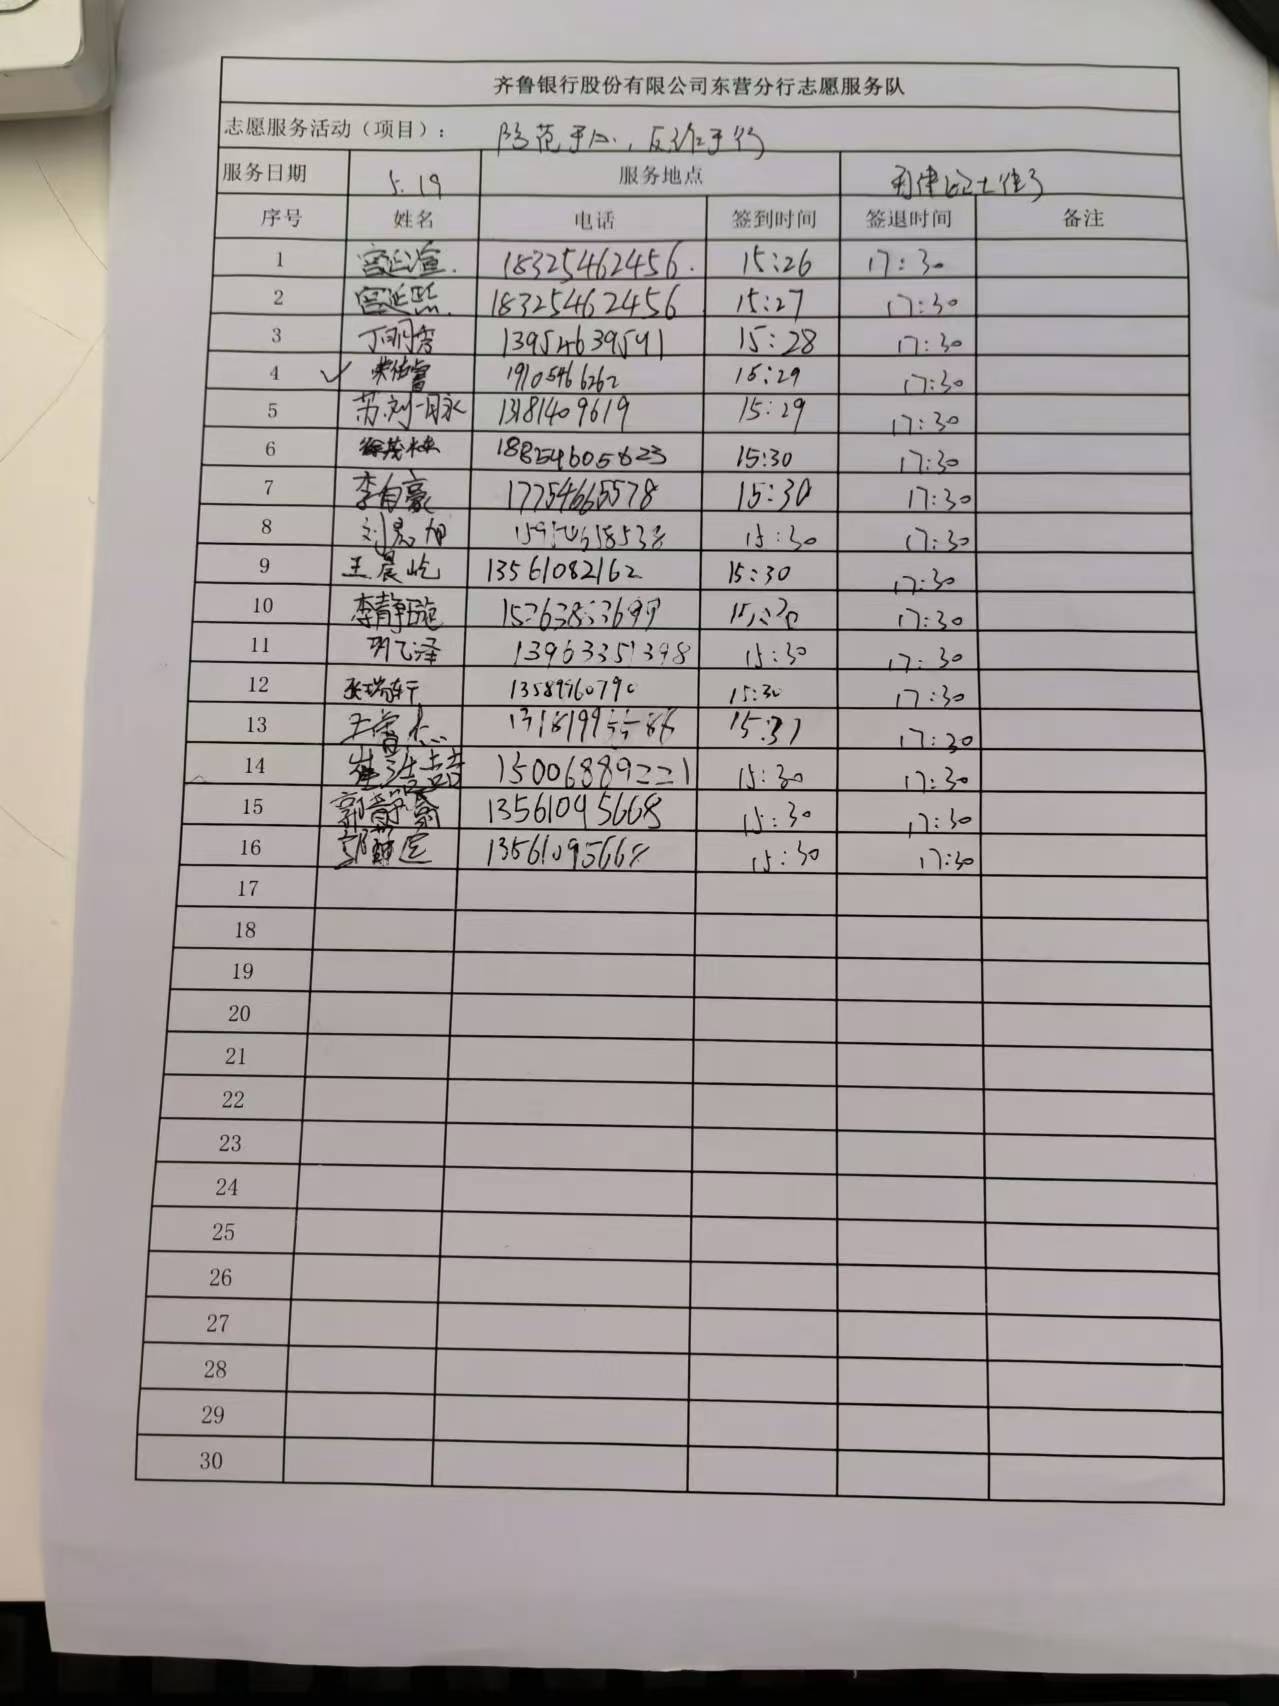 齐鲁银行股份有限公司东营分行志愿服务队
志愿服务活动（项目）： 防范于心，反诈于行
服务日期 5.19 服务地点
序号 姓名 电话 签到时间 签退时间 备注
1 18325462456. 15:26 17:30
2 18325462456 15:27 17:30
3 13954639591 15:28 17:30
4 ✓ 19105466262 15:29 17:30
5 苏刘 13181409619 15:29 17:30
6 18854605623 15:30 17:30
7 李自豪 17754665578 15:30 17:30
8 15:30 17:30
9 王晨屹 13561082162 15:30 17:30
10 李静 17:30
11 泽 13963351398 15:30 17:30
12 张瑞轩 15:30 17:30
13 17:30
14 崔浩喆 15006889221 15:30 17:30
15 郭静 13561095668 15:30 17:30
16 13561095668 15:30 17:30
17
18
19
20
21
22
23
24
25
26
27
28
29
30